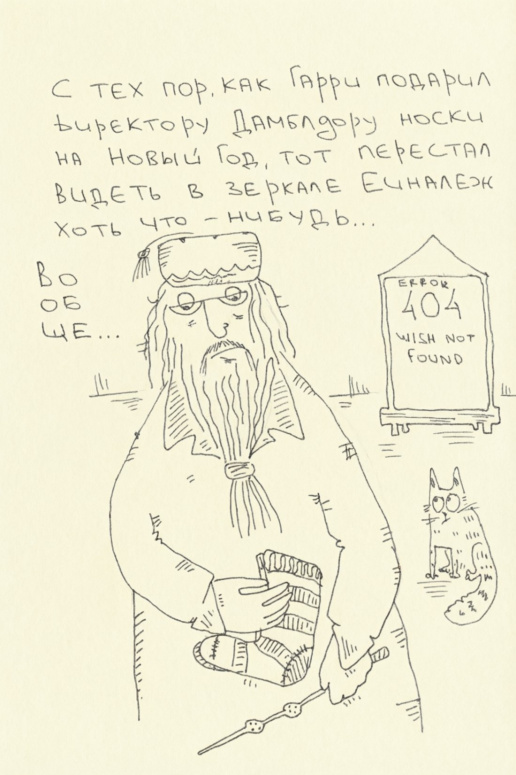 С ТЕХ ПОР, КАК ГАРРИ ПОДАРИЛ
ДИРЕКТОРУ ДАМБЛДОРУ НОСКИ
НА НОВЫЙ ГОД, ТОТ ПЕРЕСТАЛ
ВИДЕТЬ В ЗЕРКАЛЕ ЕИНАЛЕЖ
ХОТЬ ЧТО - НИБУДЬ...
ВО
ОБ
ЩЕ...
ERROR
404
WISH NOT
FOUND